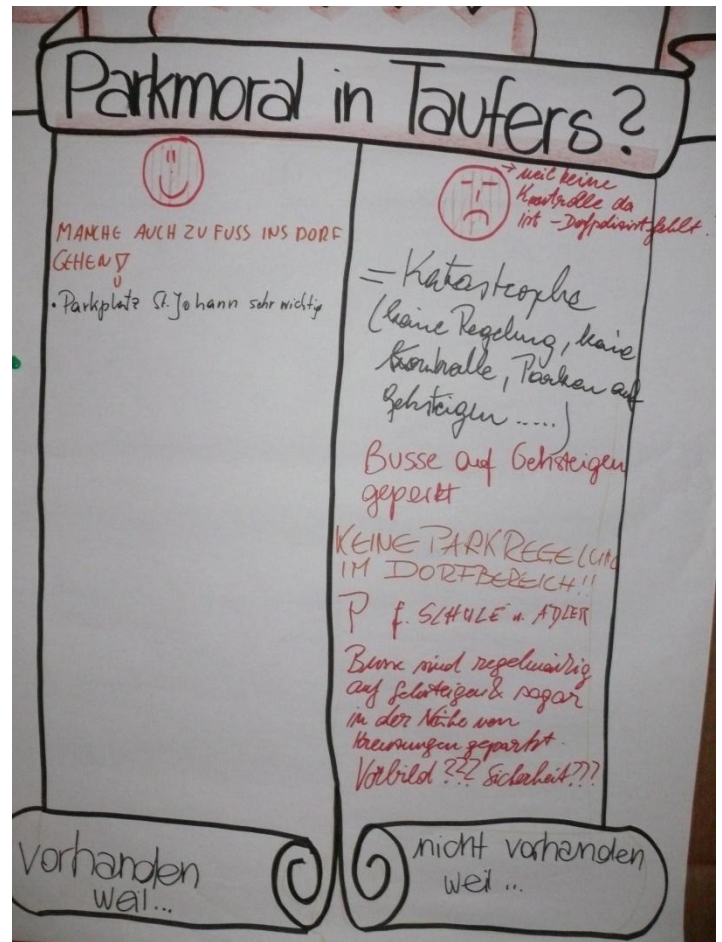 Parkmoral in Taufers?
MANCHE AUCH ZU FUSS INS DORF
GEHEN!
• Parkplatz St. Johann sehr wichtig
vorhanden
weil...
→ weil keine
Kontrolle da
ist - Dorfpolizist fehlt.
= Katastrophe
(keine Regelung, keine
Kontrolle, Parken auf
Gehsteigen .....)
Busse auf Gehsteigen
geparkt
KEINE PARKREGELUNG
IM DORFBEREICH!!
P f. SCHULE u. ADLER
Busse sind regelmäßig
auf Gehsteigen & sogar
in der Nähe von
Kreuzungen geparkt.
Vorbild??? Sicherheit???
nicht vorhanden
weil...